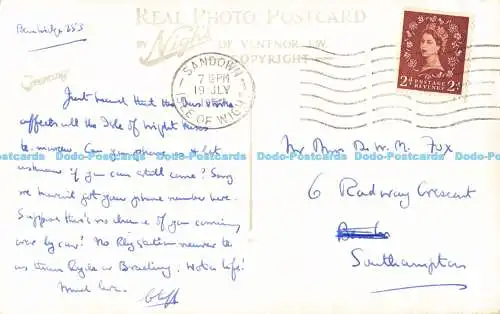 Bembridge 253
REAL PHOTO POSTCARD
BY Nigh OF VENTNOR I.W.
COPYRIGHT
SANDOWN
7 PM
19 JLY
ISLE OF WIGHT
2D POSTAGE REVENUE 2D
Just heard that the bus strike
affects all the Isle of Wight
to-morrow. Can you phone & let
us know if you can still come? Sorry
we haven't got your phone number here.
Suppose there's no chance of your coming
over by car? No
as Ryde or Brading. What a life!
Much love.
Mr Mrs D. W. M. Fox
6 Radway Crescent
Southampton
Dodo-Postcards Dodo-Postcards Dodo-Postcards Dodo-Postcards Dodo-Postcards